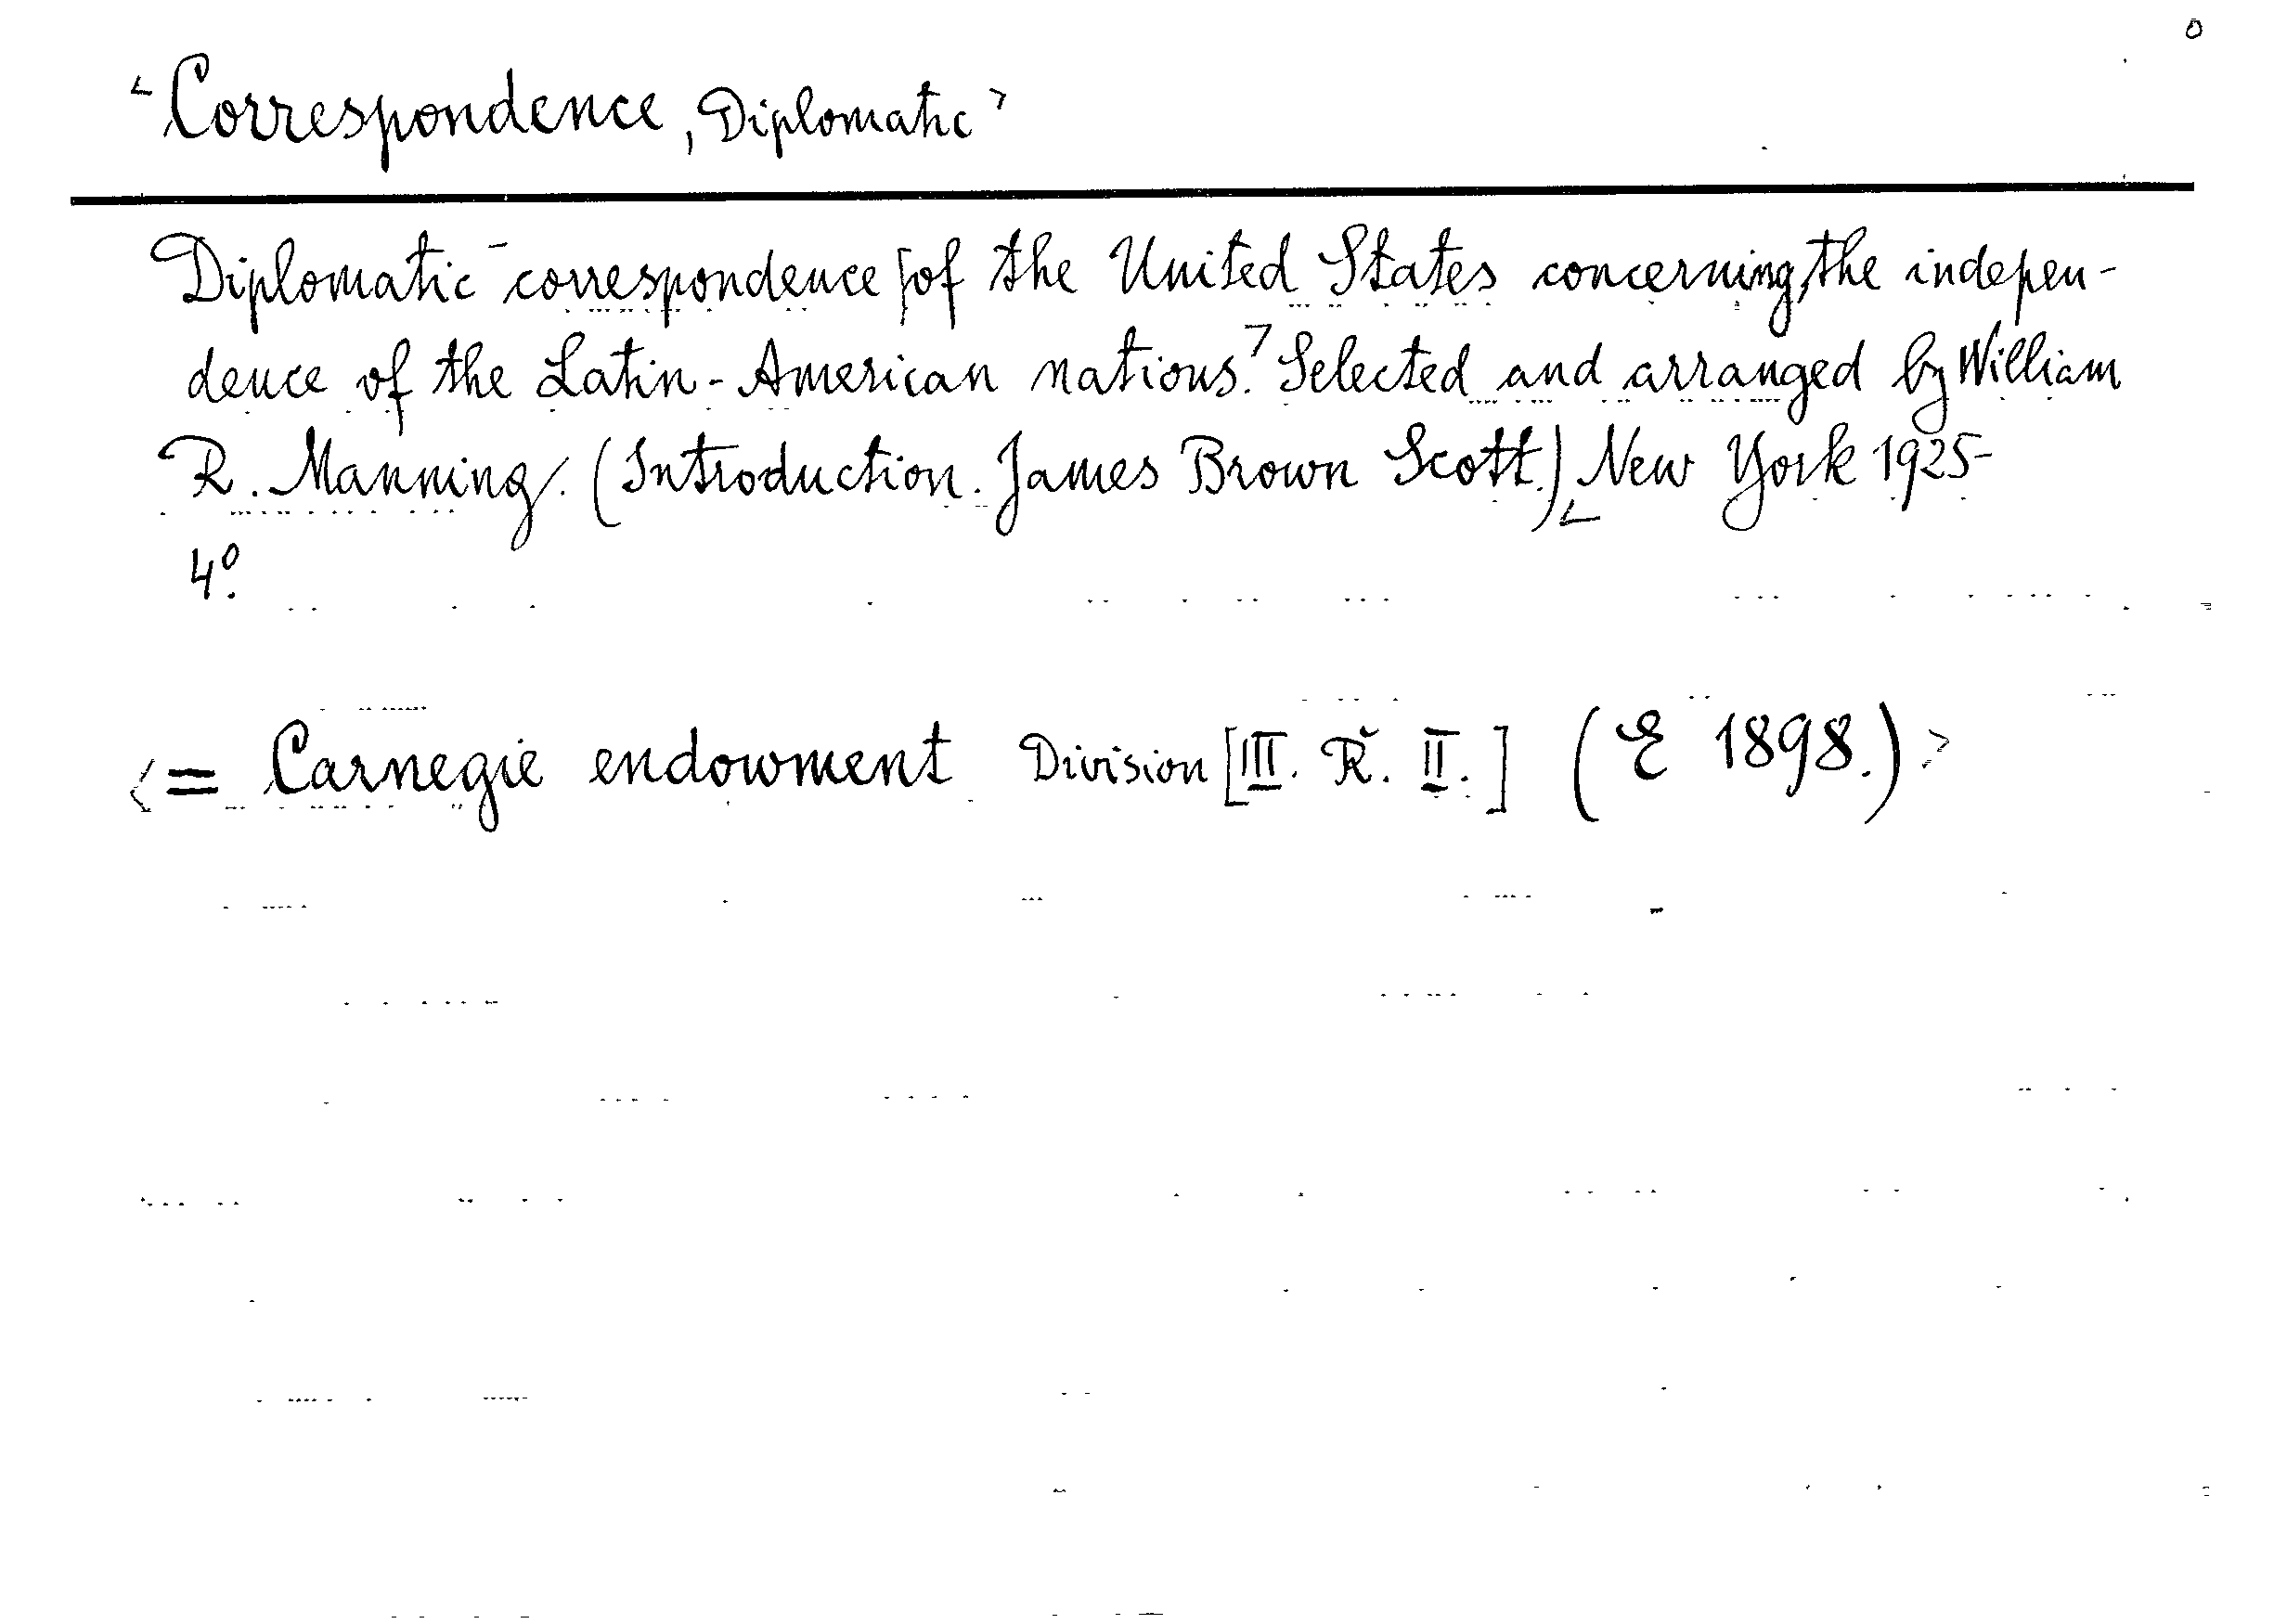 o
<Correspondence, Diplomatic>
Diplomatic-correspondence [of the United States concerning the indepen-
dence of the Latin-American nations.] Selected and arranged by William
R. Manning. (Introduction. James Brown Scott.) New York 1925-
4º.
<= Carnegie endowment Division [III. R. II.] (E 1898.)>